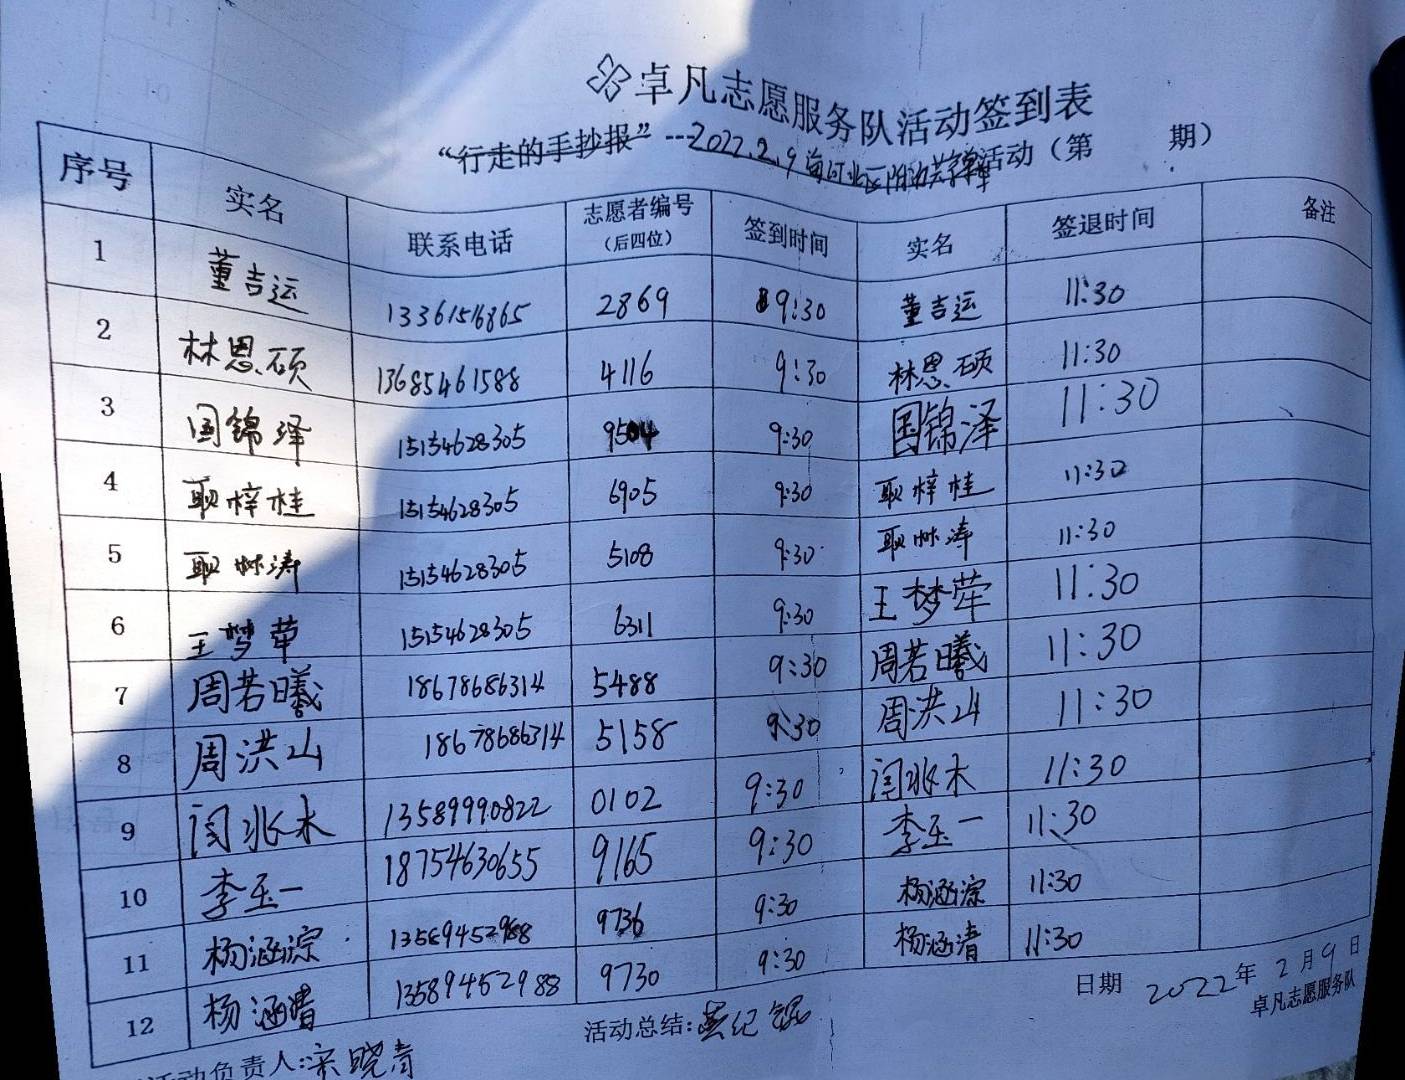 卓凡志愿服务队活动签到表
“行走的手抄报”---2022.2.9 活动（第 期）
序号 实名 联系电话 志愿者编号（后四位） 签到时间 实名 签退时间 备注
1 董吉运 13361516865 2869 9:30 董吉运 11:30
2 林恩硕 13685461588 4116 9:30 林恩硕 11:30
3 国锦泽 15154628305 9504 9:30 国锦泽 11:30
4 耿梓桂 15154628305 6905 9:30 耿梓桂 11:30
5 耿林涛 15154628305 5108 9:30 耿林涛 11:30
6 王梦荦 15154628305 6311 9:30 王梦荦 11:30
7 周若曦 18678686314 5488 9:30 周若曦 11:30
8 周洪山 18678686314 5158 9:30 周洪山 11:30
9 闫兆木 13589990822 0102 9:30 闫兆木 11:30
10 李玉一 18754630655 9165 9:30 李玉一 11:30
11 杨涵淙 13589452988 9736 9:30 杨涵淙 11:30
12 杨涵清 13589452988 9730 9:30 杨涵清 11:30
日期 2022年2月9日
卓凡志愿服务队
活动负责人:宋晓青 活动总结: